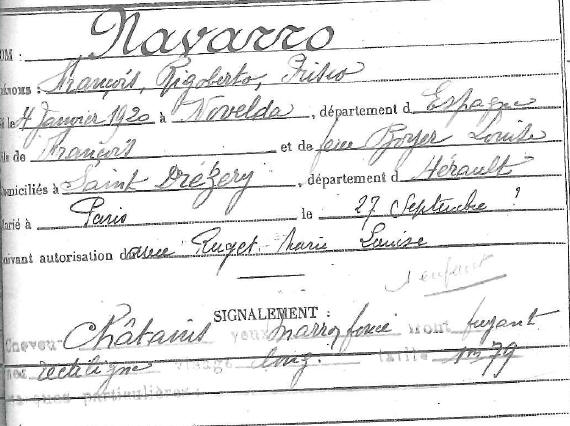 NOM : Navarro
PRÉNOMS : François, Rigoberto, Prisco
Né le 4 Janvier 1920 à Novelda, département d Espagne
fils de François et de feue Boyer Louise
domiciliés à Saint Drézery, département d Hérault
Marié à Paris le 27 Septembre ?
suivant autorisation d avec Ruget Marie Louise
1 enfant
SIGNALEMENT :
Cheveux Châtains yeux marron foncé front fuyant
nez rectiligne visage long taille 1m 79
marques particulières :